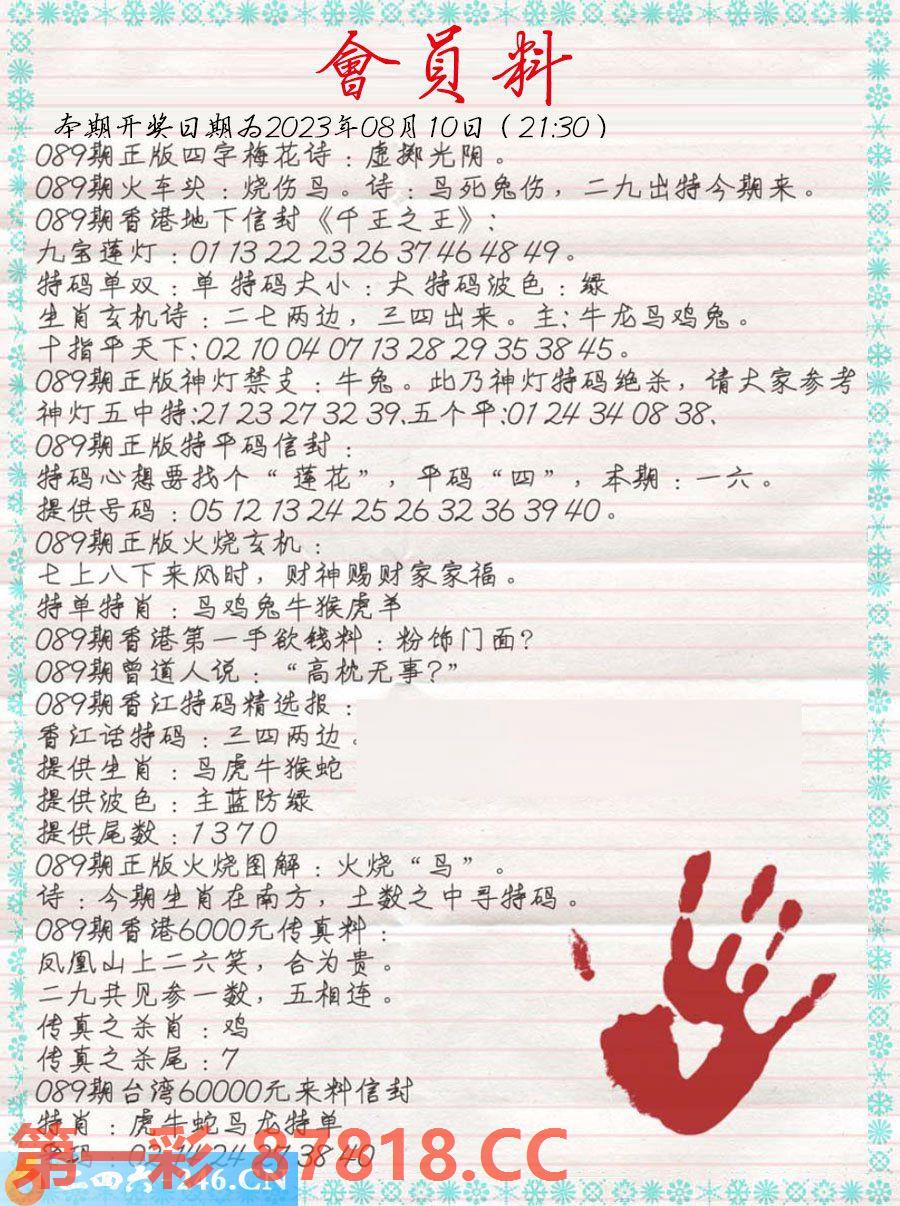 會員料
本期开奖日期为2023年08月10日（21:30）
089期正版四字梅花诗：虚掷光阴。
089期火车头：烧伤鸟。诗：鸟死兔伤，二九出特今期来。
089期香港地下信封《千王之王》：
九宝莲灯：01 13 22 23 26 37 46 48 49。
特码单双：单 特码大小：大 特码波色：绿
生肖玄机诗：二七两边，三四出来。主：牛龙鸟鸡兔。
十指平天下：02 10 04 07 13 28 29 35 38 45。
089期正版神灯禁支：牛兔。此乃神灯特码绝杀，请大家参考
神灯五中特：21 23 27 32 39.五个平：01 24 34 08 38、
089期正版特平码信封：
特码心想要找个“莲花”，平码“四”，本期：一六。
提供号码：05 12 13 24 25 26 32 36 39 40。
089期正版火烧玄机：
七上八下来风时，财神赐财家家福。
特单特肖：鸟鸡兔牛猴虎羊
089期香港第一手欲钱料：粉饰门面？
089期曾道人说：“高枕无事？”
089期香江特码精选报：
香江话特码：三四两边。
提供生肖：鸟虎牛猴蛇
提供波色：主蓝防绿
提供尾数：1370
089期正版火烧图解：火烧“鸟”。
诗：今期生肖在南方，土数之中寻特码。
089期香港6000元传真料：
凤凰山上二六笑，合为贵。
二九共见参一数，五相连。
传真之杀肖：鸡
传真之杀尾：7
089期台湾60000元来料信封
特肖：虎牛蛇鸟龙特单
24 38 40
第一彩 87818.CC
二四六 246.CN